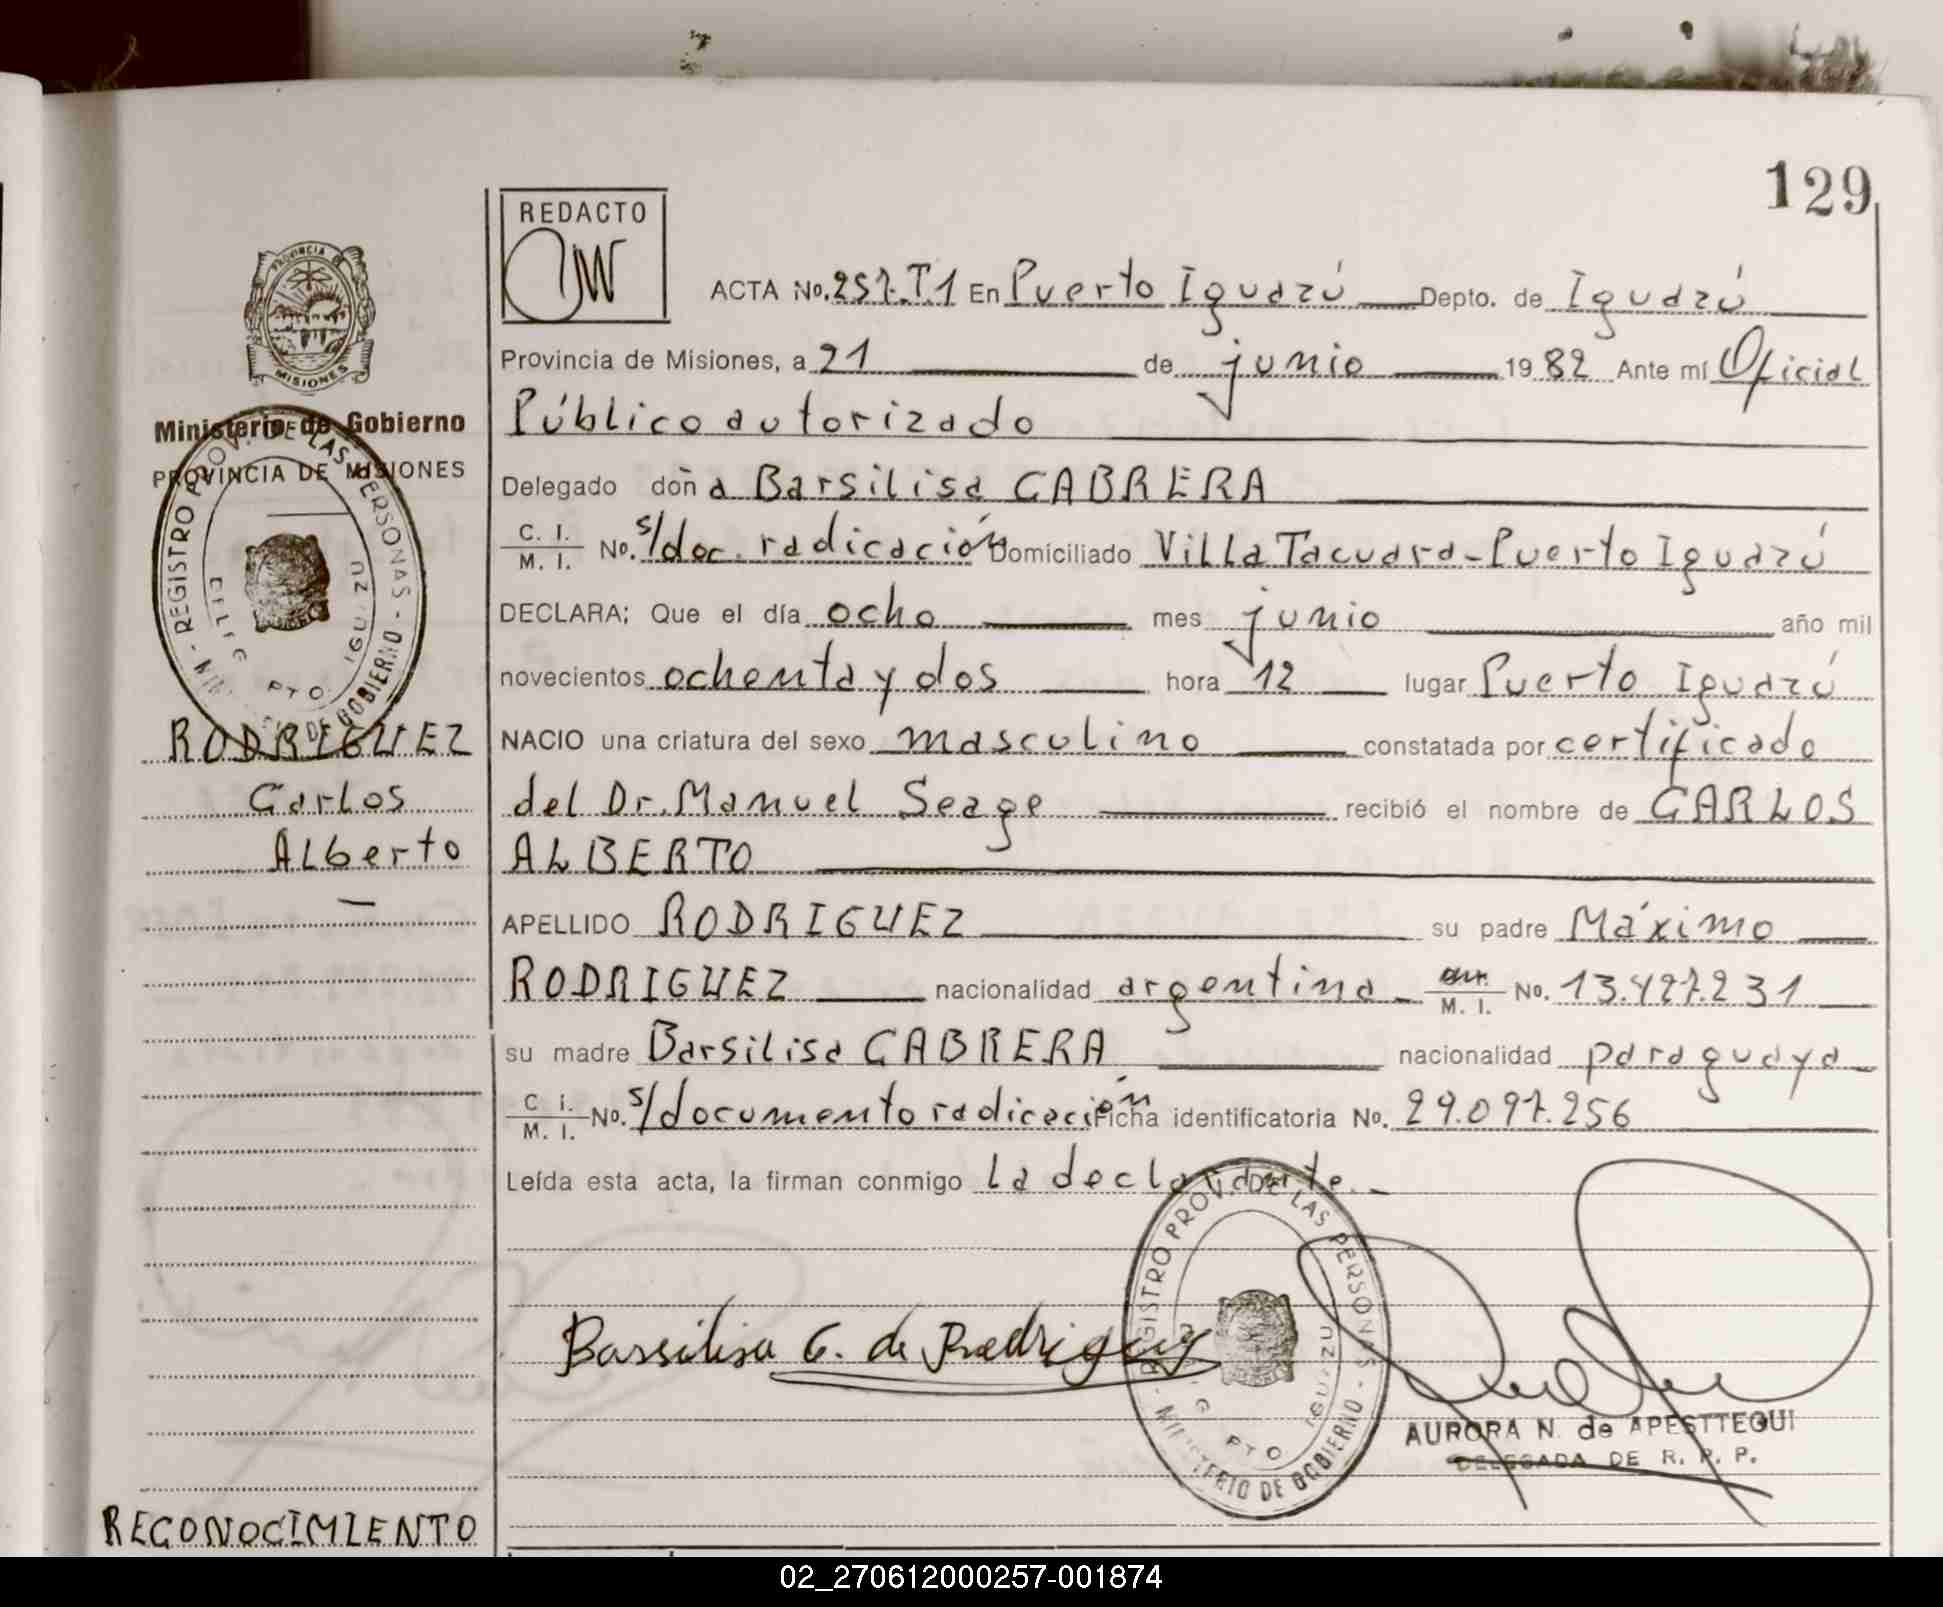 129
REDACTO
PROVINCIA DE
MISIONES
ACTA No. 257-T.1 En Puerto Iguazú Depto. de Iguazú
Provincia de Misiones, a 21 de junio 1982 Ante mí Oficial
Público autorizado
Ministerio de Gobierno
PROVINCIA DE MISIONES
REGISTRO PROV. DE LAS PERSONAS - MINISTERIO DE GOBIERNO
PTO. IGUAZU
Delegado doña Barsilisa CABRERA
C. I. / M. I. No. s/doc. radicación Domiciliado Villa Tacuara - Puerto Iguazú
DECLARA; Que el día ocho mes junio año mil
novecientos ochenta y dos hora 12 lugar Puerto Iguazú
RODRIGUEZ
Carlos
Alberto
NACIO una criatura del sexo masculino constatada por certificado
del Dr. Manuel Seage recibió el nombre de CARLOS
ALBERTO
APELLIDO RODRIGUEZ su padre Máximo
RODRIGUEZ nacionalidad argentina M. I. No. 13.427.231
su madre Barsilisa CABRERA nacionalidad paraguaya
C. I. / M. I. No. s/documento radicación Ficha identificatoria No. 29.097.256
Leída esta acta, la firman conmigo la declarante.-
Barsilisa C. de Rodriguez
REGISTRO PROV. DE LAS PERSONAS - MINISTERIO DE GOBIERNO
PTO. IGUAZU
AURORA N. de APESTTEGUI
DELEGADA DE R. P. P.
RECONOCIMIENTO
02_270612000257-001874